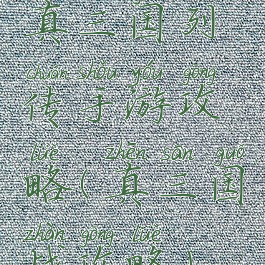 真三国列
chuán shǒu yóu gōng
传手游攻
lüè zhēn sān guó
略(真三国
zhàn gōng lüè
战攻略)